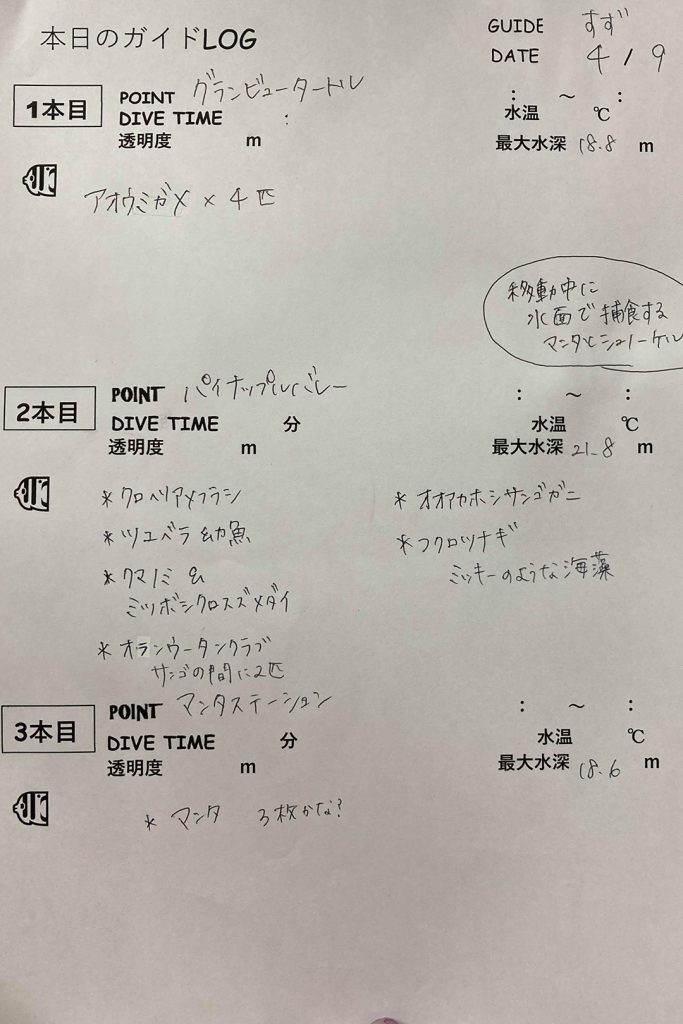 本日のガイドLOG
GUIDE すず
DATE 4/9
1本目
POINT グランビュータートル
DIVE TIME :
: ~ :
水温 ℃
透明度 m
最大水深 18.8 m
アオウミガメ × 4匹
移動中に
水面で捕食する
マンタとシュノーケル
2本目
POINT パイナップルバレー
: ~ :
DIVE TIME 分
水温 ℃
透明度 m
最大水深 21.8 m
* クロヘリアメフラシ
* ツユベラ 幼魚
* クマノミ &
ミツボシクロスズメダイ
* オランウータンクラブ
サンゴの間に2匹
* オオアカホシサンゴガニ
* フクロツナギ
ミッキーのような海藻
3本目
POINT マンタステーション
: ~ :
DIVE TIME 分
水温 ℃
透明度 m
最大水深 18.6 m
* マンタ 3枚かな?